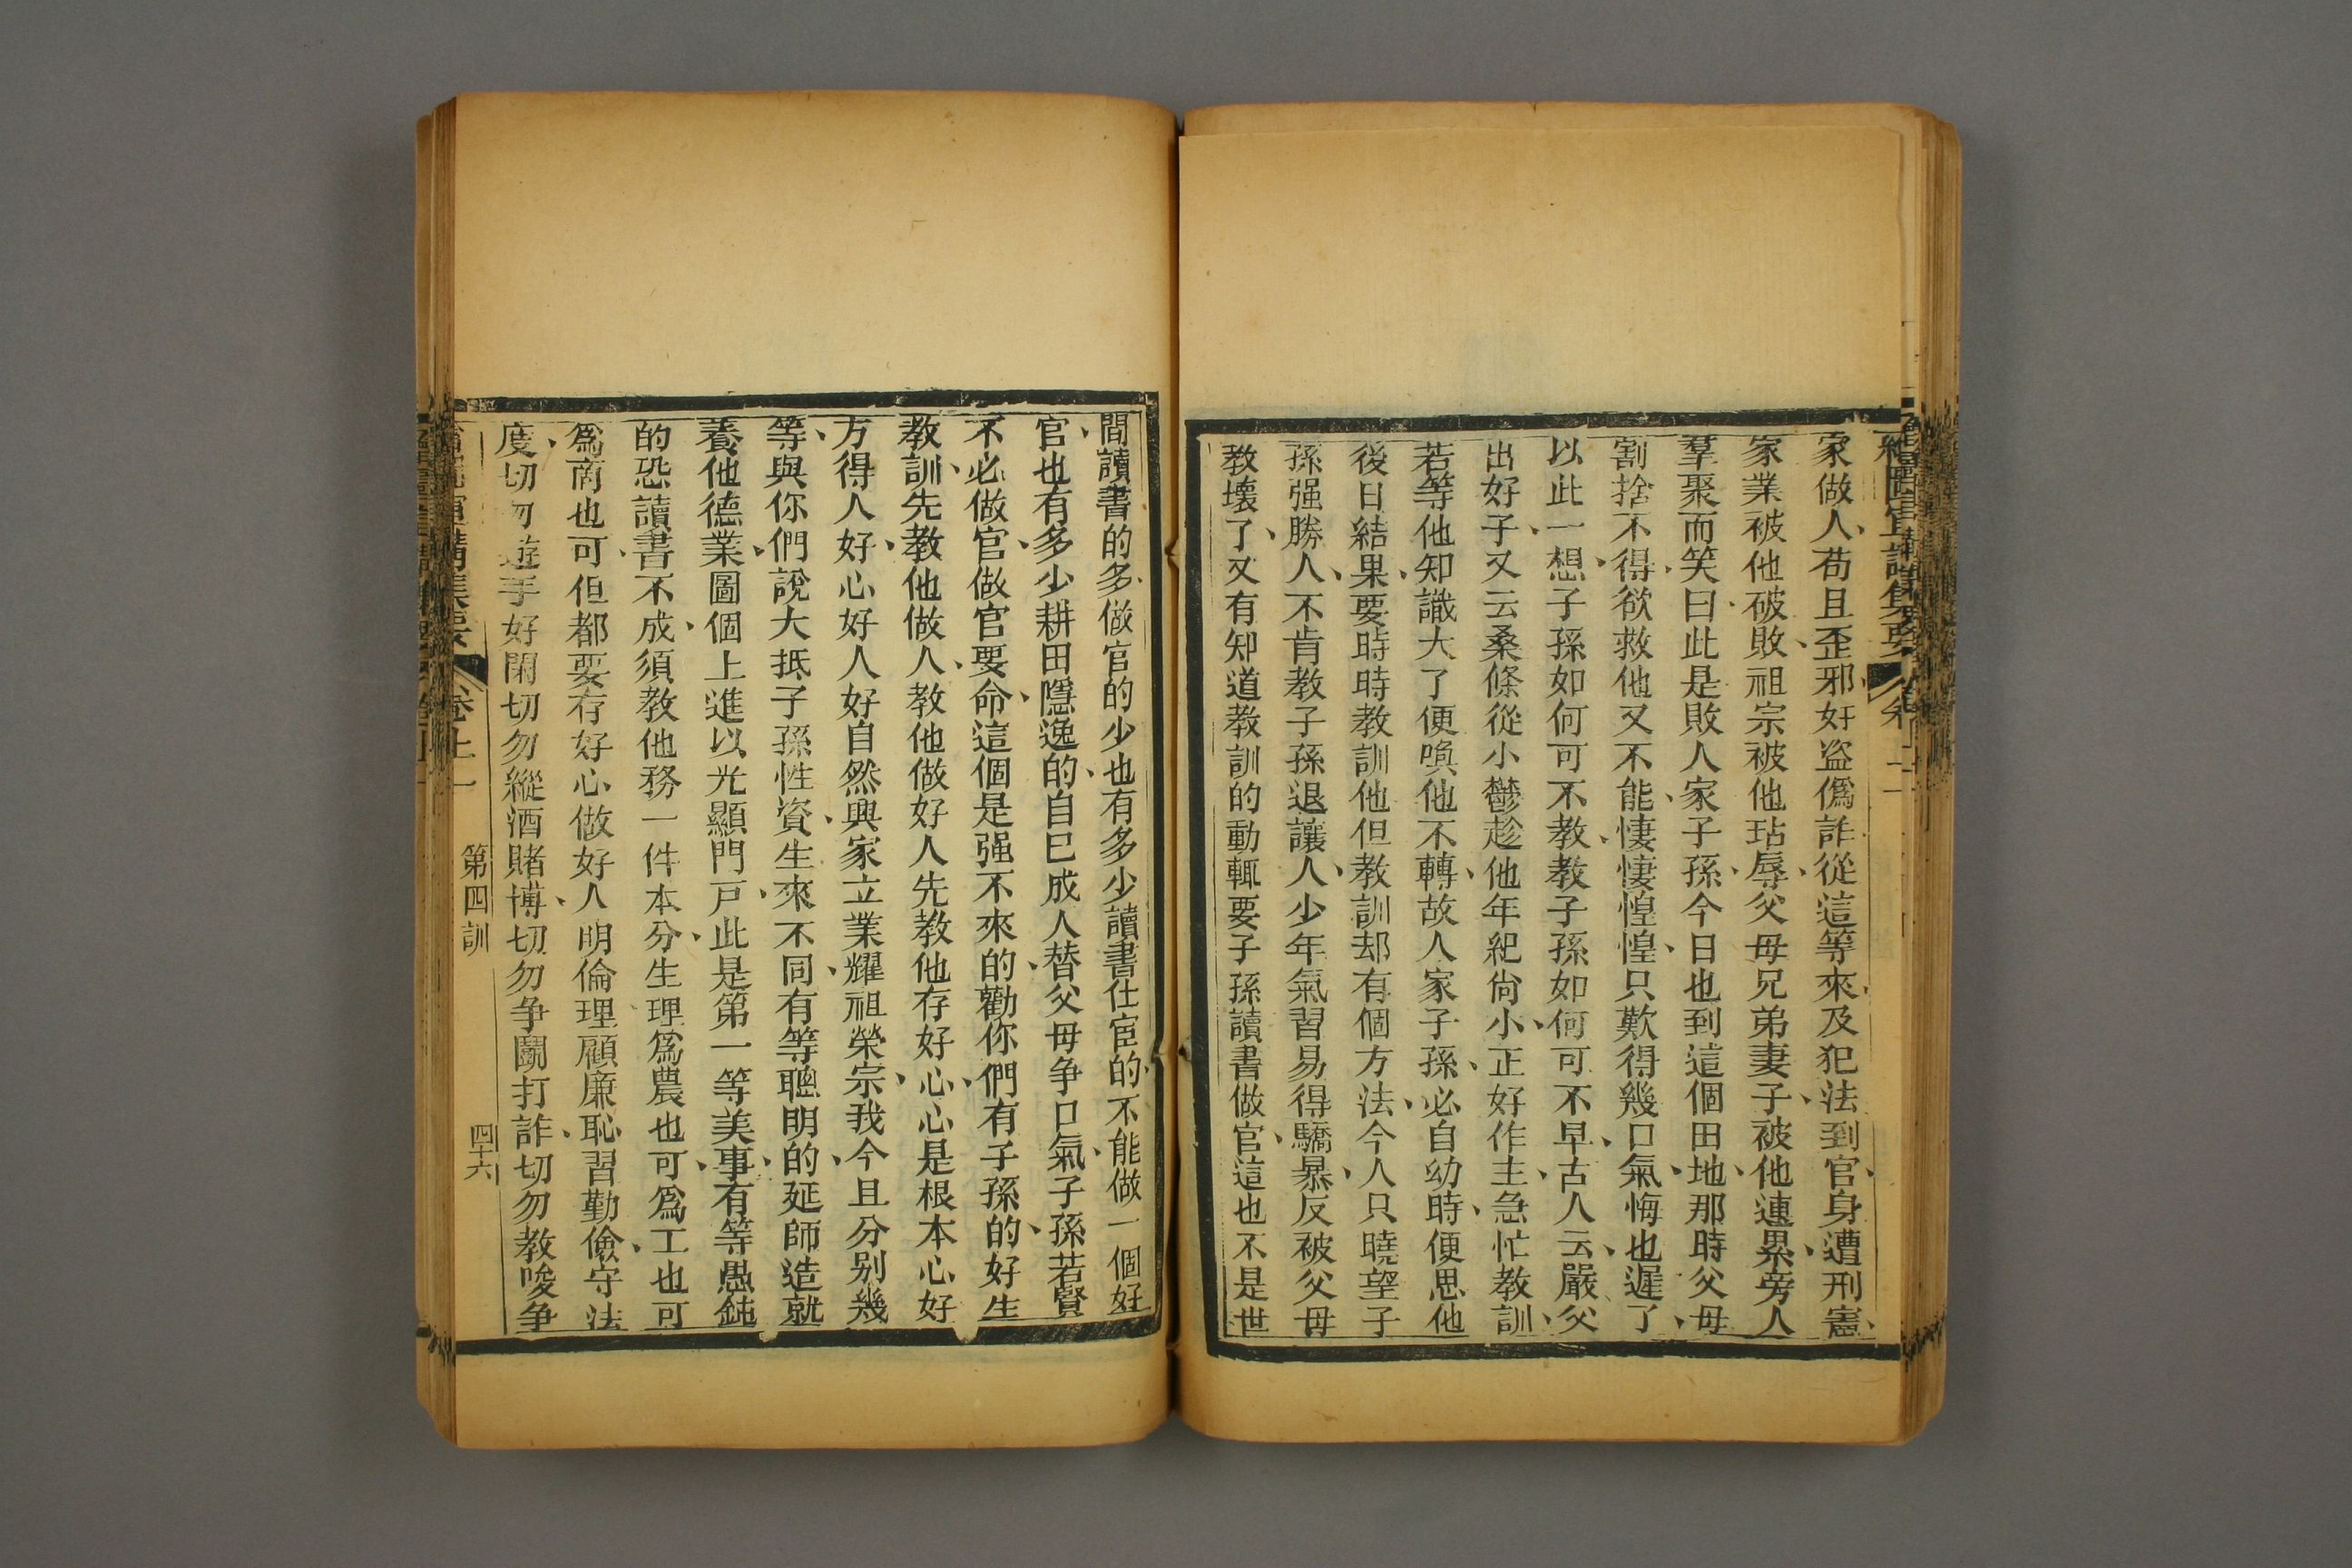 家做人、苟且歪邪、奸盗僞詐從這等來、及犯法到官、身遭刑憲、
家業被他破敗、祖宗被他玷辱、父母兄弟妻子、被他連累、旁人
羣聚而笑曰、此是敗人家子孫、今日也到這個田地、那時父母、
割捨不得、欲救他又不能、悽悽惶惶、只歎得幾口氣、悔也遲了、
以此一想、子孫如何可不教、教子孫如何可不早、古人云、嚴父
出好子、又云桑條從小鬱、趁他年紀尙小、正好作主、急忙教訓、
若等他知識大了、便喚他不轉、故人家子孫、必自幼時、便思他
後日結果、要時時教訓他、但教訓却有個方法、今人只曉望子
孫强勝人、不肯教子孫退讓人、少年氣習易得驕暴、反被父母
教壞了、又有知道教訓的、動輒要子孫讀書做官、這也不是、世
間讀書的多、做官的少、也有多少讀書仕宦的、不能做一個好
官、也有多少耕田隱逸的、自已成人、替父母争口氣、子孫若賢
不必做官、做官要命、這個是强不來的、勸你們有子孫的、好生
教訓、先教他做人、教他做好人、先教他存好心、心是根本、心好
方得人好、好心好人、好自然興家立業、耀祖榮宗、我今且分别幾
等、與你們說、大抵子孫性資、生來不同、有等聰明的、延師造就
養他德業、圖個上進、以光顯門戸、此是第一等美事、有等愚鈍
的、恐讀書不成、須教他務一件本分生理、爲農也可、爲工也可
爲商也可、但都要存好心、做好人、明倫理、顧廉恥、習勤儉、守法
度、切勿遊手好閑、切勿縱酒賭博、切勿争鬭打詐、切勿教唆争
卷上一
第四訓
四十六